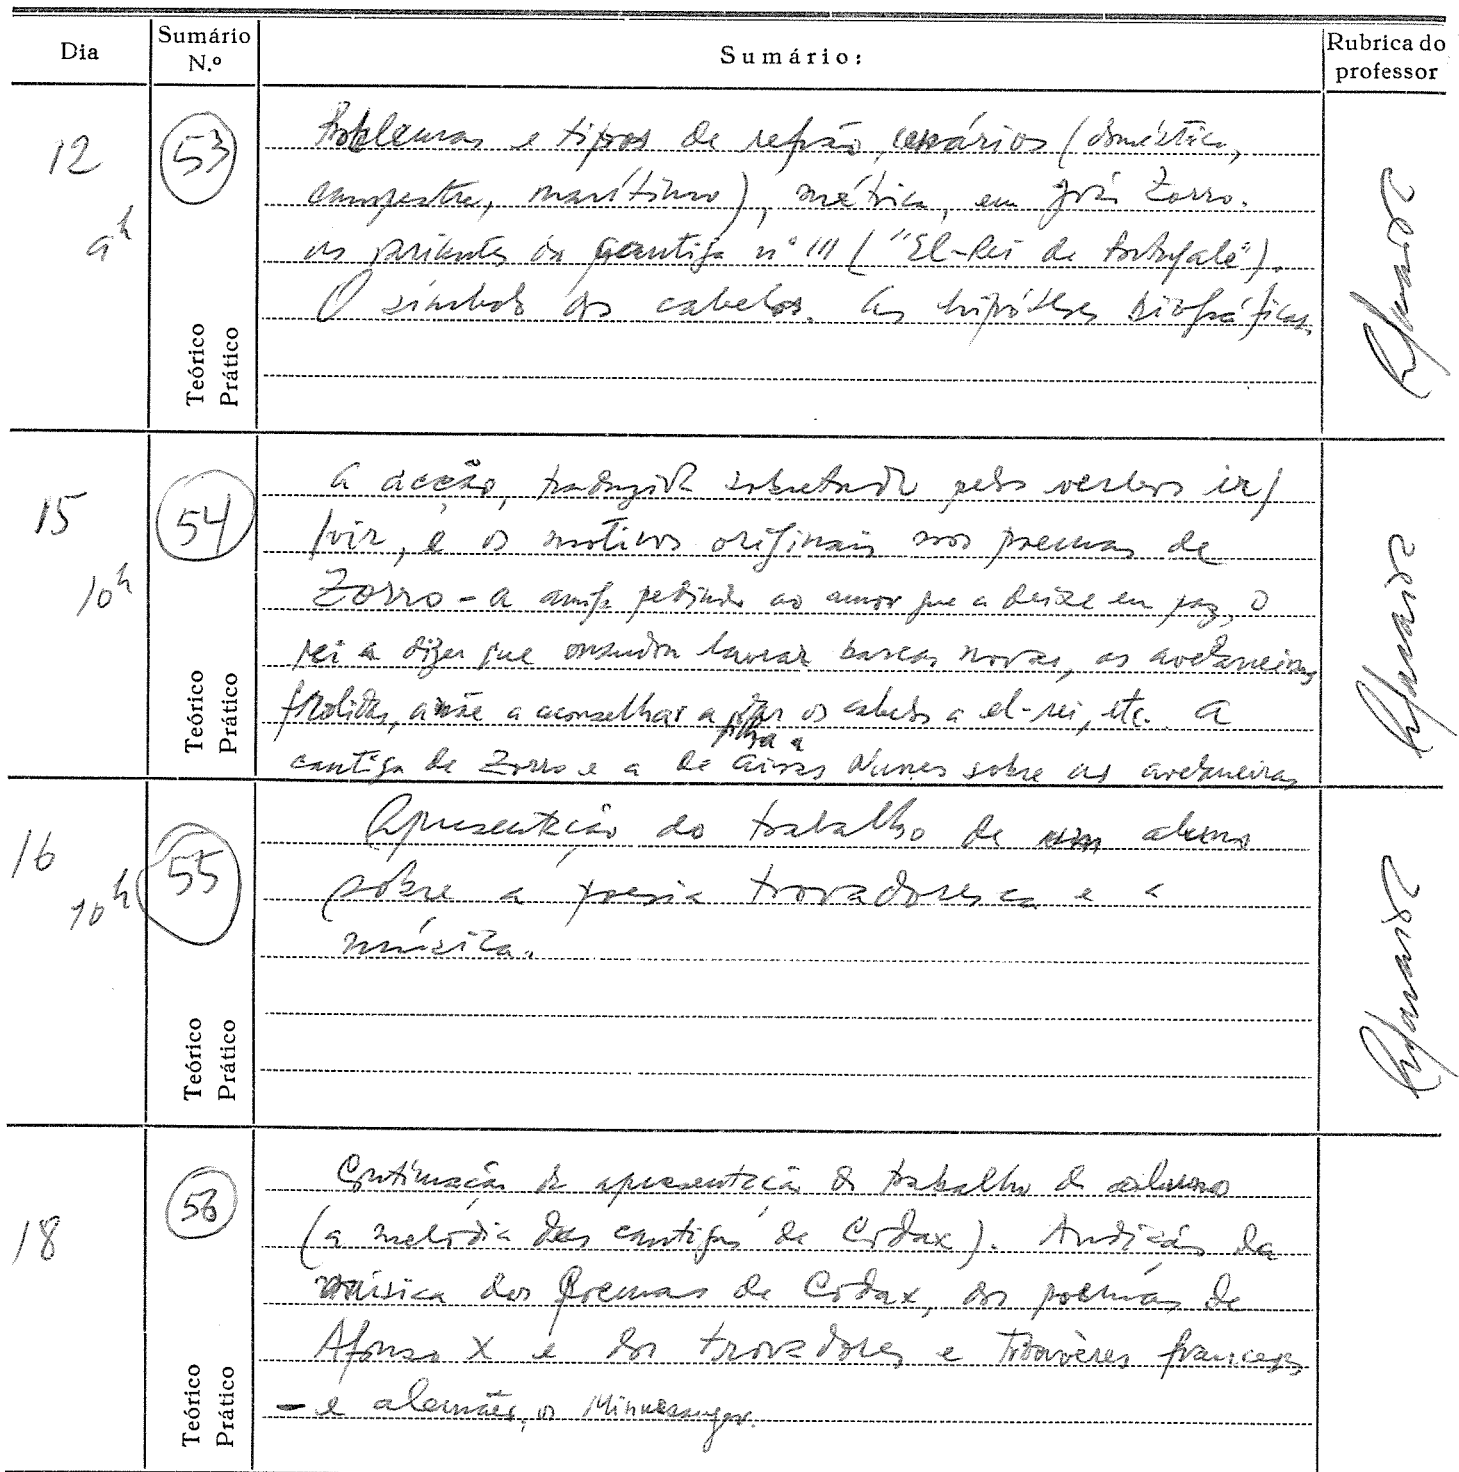 Dia
Sumário N.º
Sumário:
Rubrica do professor
12
9h
53
Teórico
Prático
Problemas e tipos de refrão, cenários (doméstico,
campestre, marítimo), métrica, em João Zorro.
as variantes da cantiga nº III ("El-Rei de Portugale").
O símbolo dos cabelos. As hipóteses biográficas.
15
10h
54
Teórico
Prático
A acção, traduzida sobretudo pelos verbos ir/
/vir, e os motivos originais nos poemas de
Zorro - a amiga pedindo ao amor que a deixe em paz, o
rei a dizer que mandou lavrar barcas novas, as avelaneiras
frolidas, a mãe a aconselhar a filha a dar os cabelos a el-rei, etc. A
cantiga de Zorro e a de Airas Nunes sobre as avelaneiras
16
10h
55
Teórico
Prático
Apresentação do trabalho de um aluno
sobre a poesia trovadoresca e a
música.
18
56
Teórico
Prático
Continuação da apresentação do trabalho do aluno
(a melodia das cantigas de Codax). Audição da
música dos poemas de Codax, dos poemas de
Afonso X e dos trovadores e trouvères franceses
- e alemães, os Minnesänger.